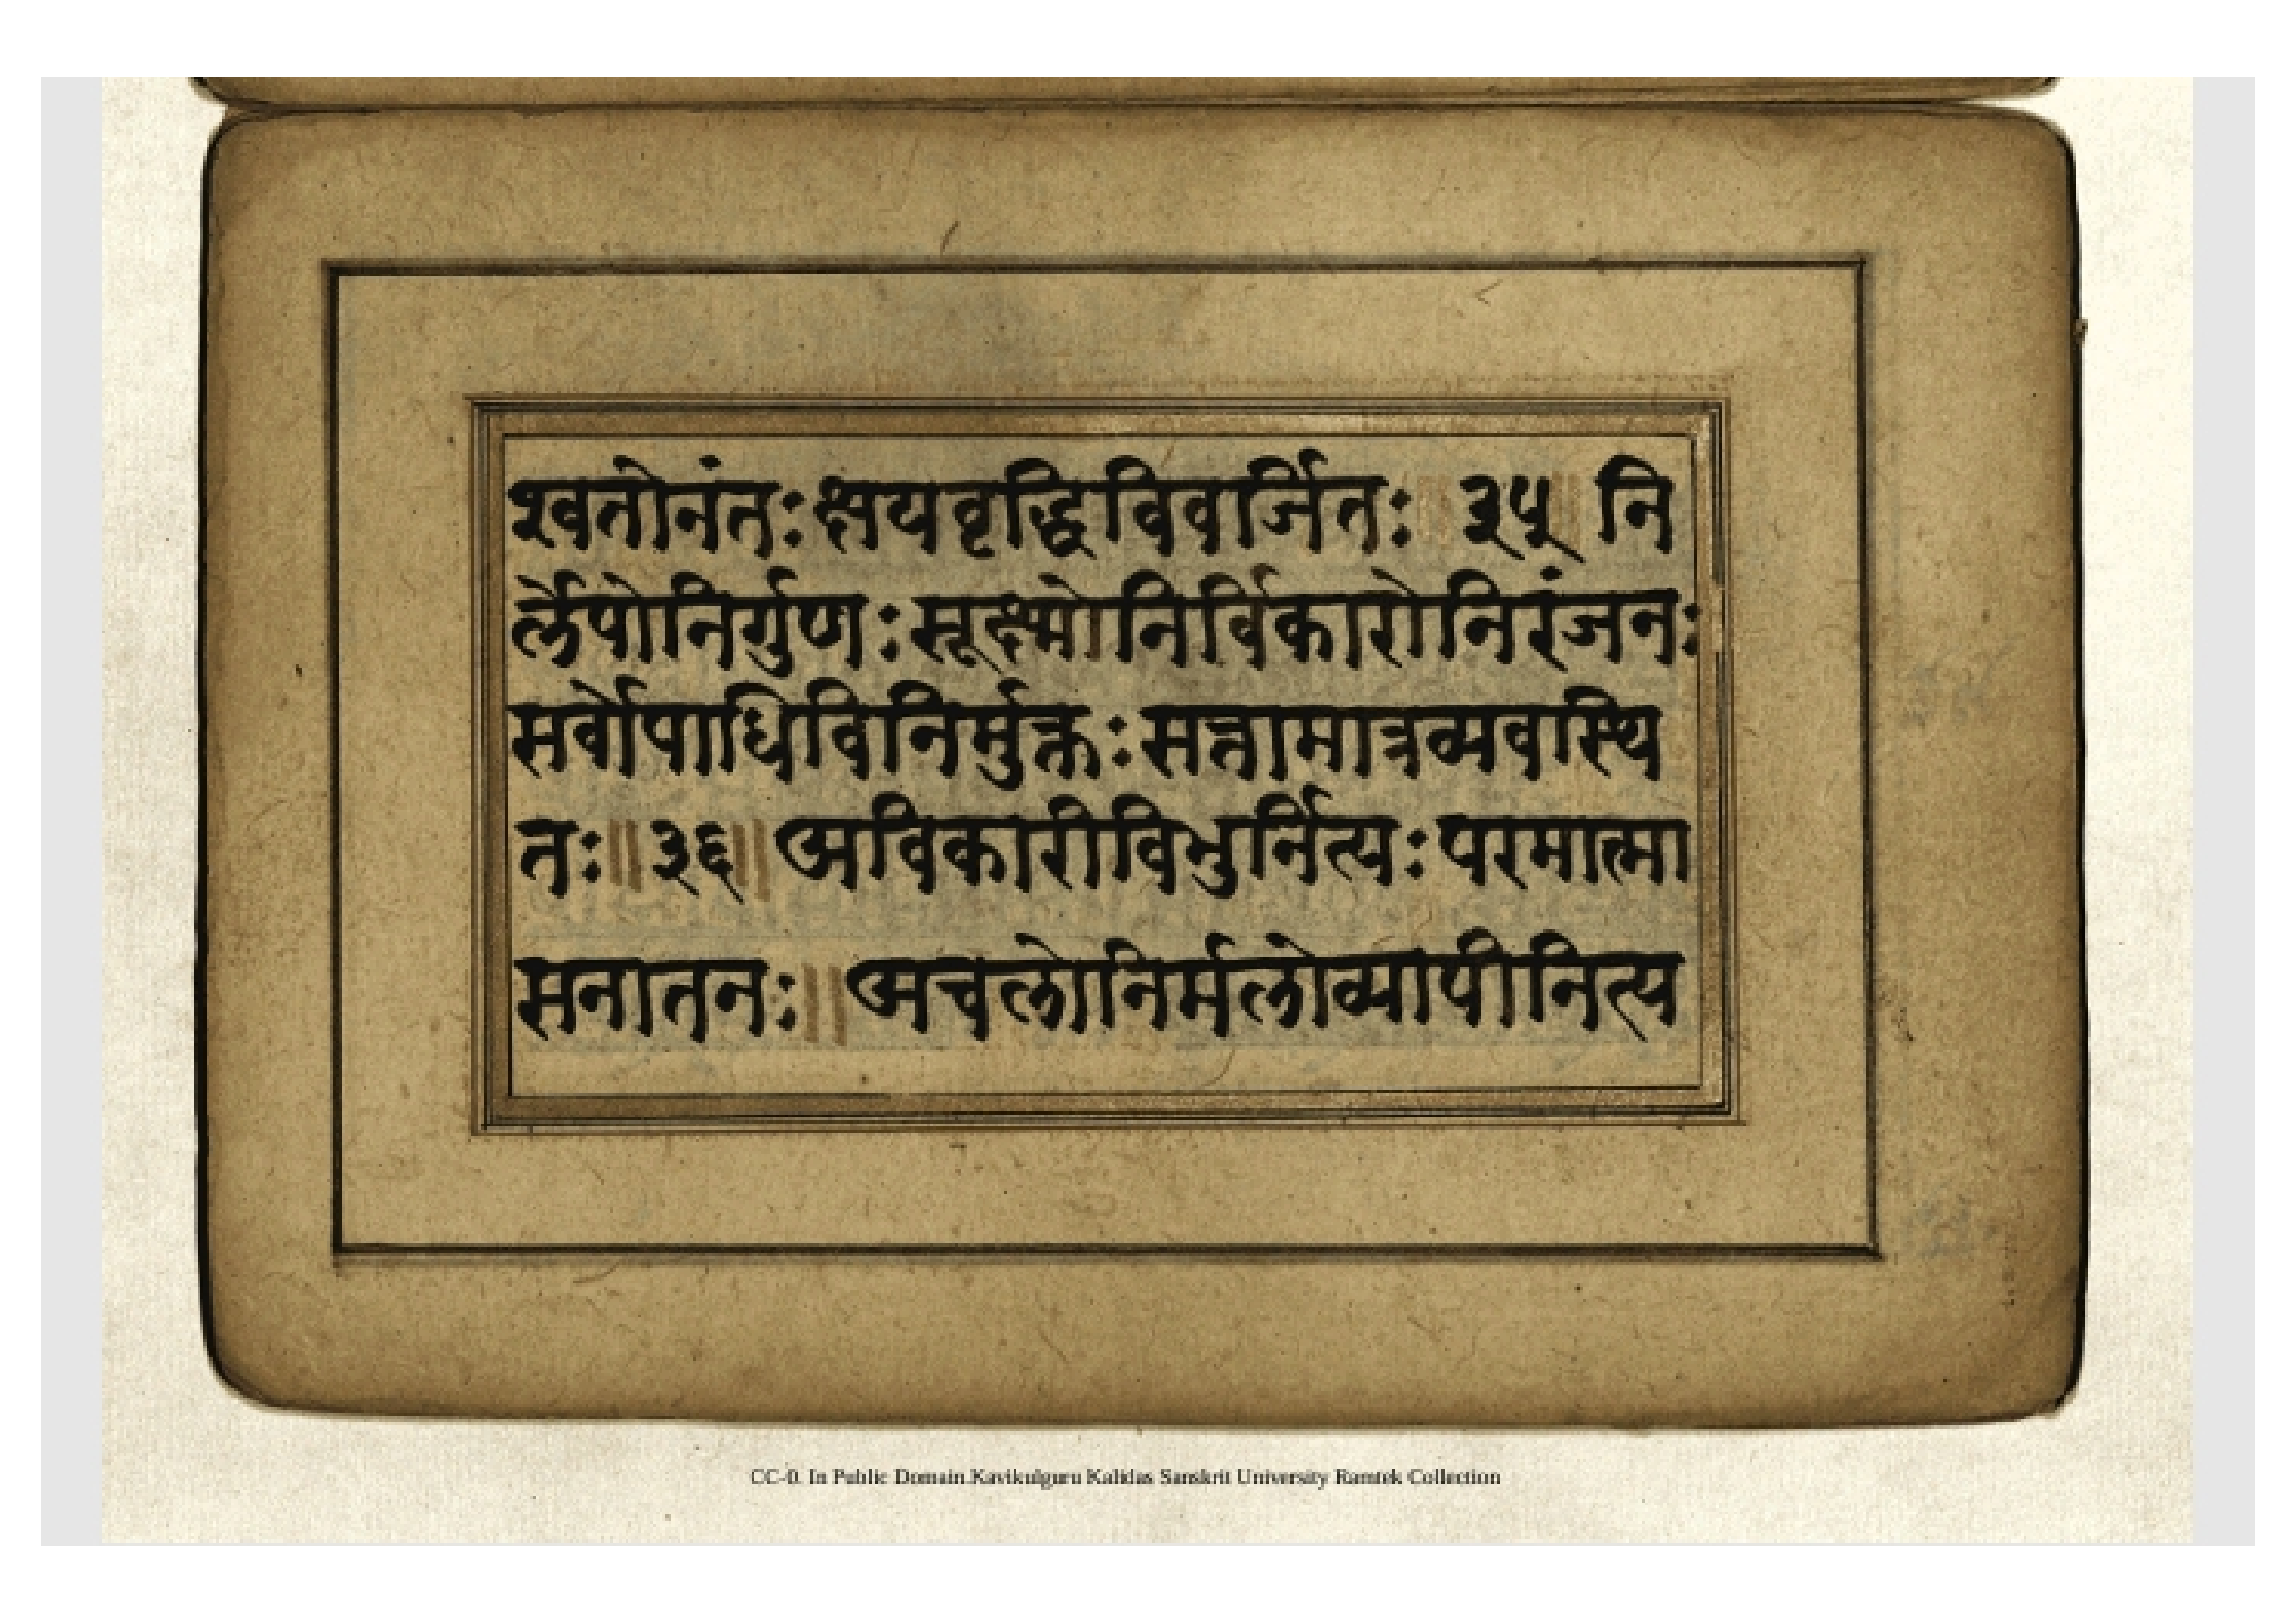 श्वतोनंतःक्षयवृद्धिविवर्जितः॥३५॥नि
र्लेपोनिर्गुणःसूक्ष्मोनिर्विकारोनिरंजनः
सर्वोपाधिविनिर्मुक्तःसत्तामात्रव्यवस्थि
तः॥३६॥अविकारीविभुर्नित्यःपरमात्मा
सनातनः॥अचलोनिर्मलोव्यापीनित्य
CC-0. In Public Domain.Kavikulguru Kalidas Sanskrit University Ramtek Collection